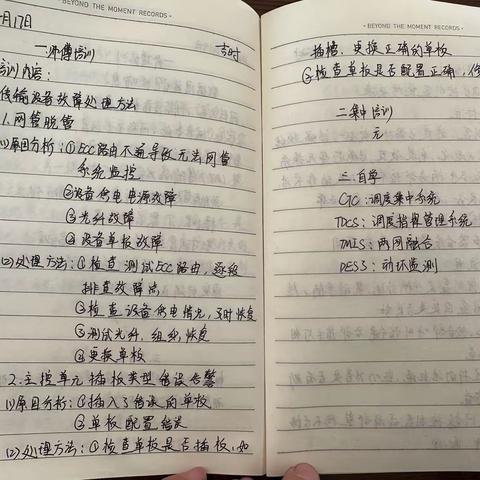 - BEYOND THE MOMENT RECORDS -
月17日
一.师傅培训 2小时
培训内容:
传输设备故障处理方法
1.网管脱管
(1)原因分析:①ECC路由不通导致无法网管
系统监控
②设备供电电源故障
③光纤故障
④设备单板故障
(2)处理方法:①检查测试ECC路由,逐段
排查故障点
②检查设备供电情况,及时恢复
③测试光纤,组织恢复
④更换单板
2.主控单元插板类型错误告警
(1)原因分析:①插入了错误的单板
②单板配置错误
(2)处理方法:①检查单板是否插板,如
- BEYOND THE MOMENT RECORDS -
插槽,更换正确的单板
②检查单板是否配置正确,
二.集中培训
无
三.自学
CTC:调度集中系统
TDCS:调度指挥管理系统
TMIS:两网融合
DESS:动环监测